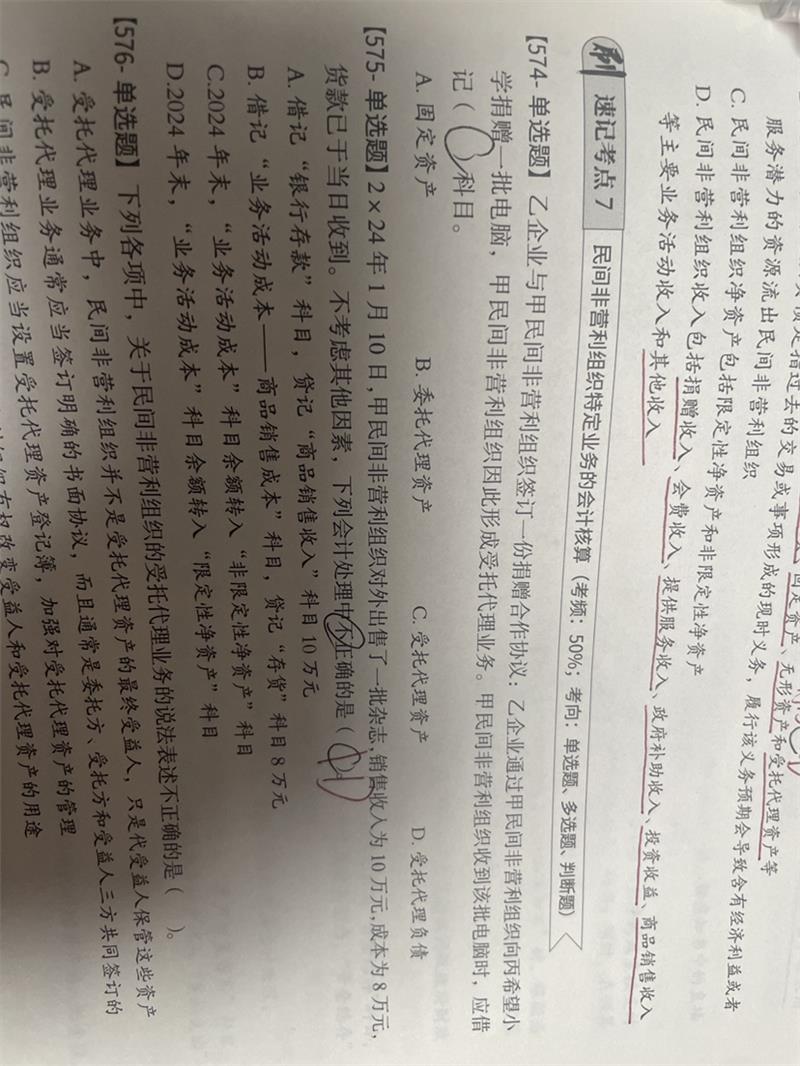 是指过去的交易或事项形成的现时义务，履行该义务预期会导致含有经济利益或者
服务潜力的资源流出民间非营利组织
C. 民间非营利组织净资产包括限定性净资产和非限定性净资产
D. 民间非营利组织收入包括捐赠收入、会费收入、提供服务收入、政府补助收入、投资收益、商品销售收入
等主要业务活动收入和其他收入
刷 速记考点 7 民间非营利组织特定业务的会计核算（考频：50%；考向：单选题、多选题、判断题）
【574- 单选题】乙企业与甲民间非营利组织签订一份捐赠合作协议：乙企业通过甲民间非营利组织向丙希望小
学捐赠一批电脑，甲民间非营利组织因此形成受托代理业务。甲民间非营利组织收到该批电脑时，应借
记（ ）科目。
A. 固定资产 B. 委托代理资产 C. 受托代理资产 D. 受托代理负债
【575- 单选题】2×24 年 1 月 10 日，甲民间非营利组织对外出售了一批杂志，销售收入为 10 万元，成本为 8 万元，
货款已于当日收到。不考虑其他因素，下列会计处理中不正确的是（
A. 借记“银行存款”科目，贷记“商品销售收入”科目 10 万元
B. 借记“业务活动成本——商品销售成本”科目，贷记“存货”科目 8 万元
C.2024 年末，“业务活动成本”科目余额转入“非限定性净资产”科目
D.2024 年末，“业务活动成本”科目余额转入“限定性净资产”科目
【576- 单选题】下列各项中，关于民间非营利组织的受托代理业务的说法表述不正确的是（ ）。
A. 受托代理业务中，民间非营利组织并不是受托代理资产的最终受益人，只是代受益人保管这些资产
B. 受托代理业务通常应当签订明确的书面协议，而且通常是委托方、受托方和受益人三方共同签订的
C. 民间非营利组织应当设置受托代理资产登记簿，加强对受托代理资产的管理
组织有权改变受益人和受托代理资产的用途